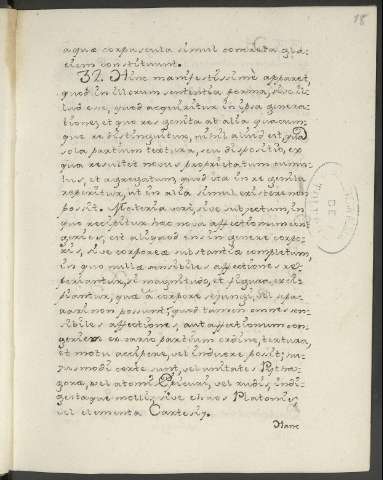 18
aquæ corpuscula simul concreta gla-
ciem constituunt.
32. Hinc manifestissimè apparet,
quod in illorum sententia forma, sive il-
lud esse, quod acquiritur in ipsa genera-
tione, et quo res genita ab alia quacum-
que re distinguitur, nihil aliud est, quàm
sola partium textura, seu dispositio, ex
qua resultet novus proprietatum cumu-
lus, et agregatum, quod ita in re genita
reperiatur, ut in alia simul existere non
possit. Materia verò, sive subjectum, in
quo recipitur hæc nova affectionum con-
geries, est aliquod ens in genere corpo-
ris, sive corporeæ substantiæ completum,
in quo nullæ sensibiles affectiones re-
periantur, si magnitudo, et figura exci-
piantur, quæ à corpore sejungi, vel sepa-
rari non possunt; quod tamen omnes sen-
sibiles affectiones, aut affectionum con-
geriem ex vario partium ordine, textura,
et motu accipere, vel induere possit; cu-
jusmodi certe sunt, vel unitates Pytha-
goræ, vel atomi Epicuri, vel rudis, indi-
gestaque moles, sive chaos Platonis,
vel elementa Cartesij.
Hanc